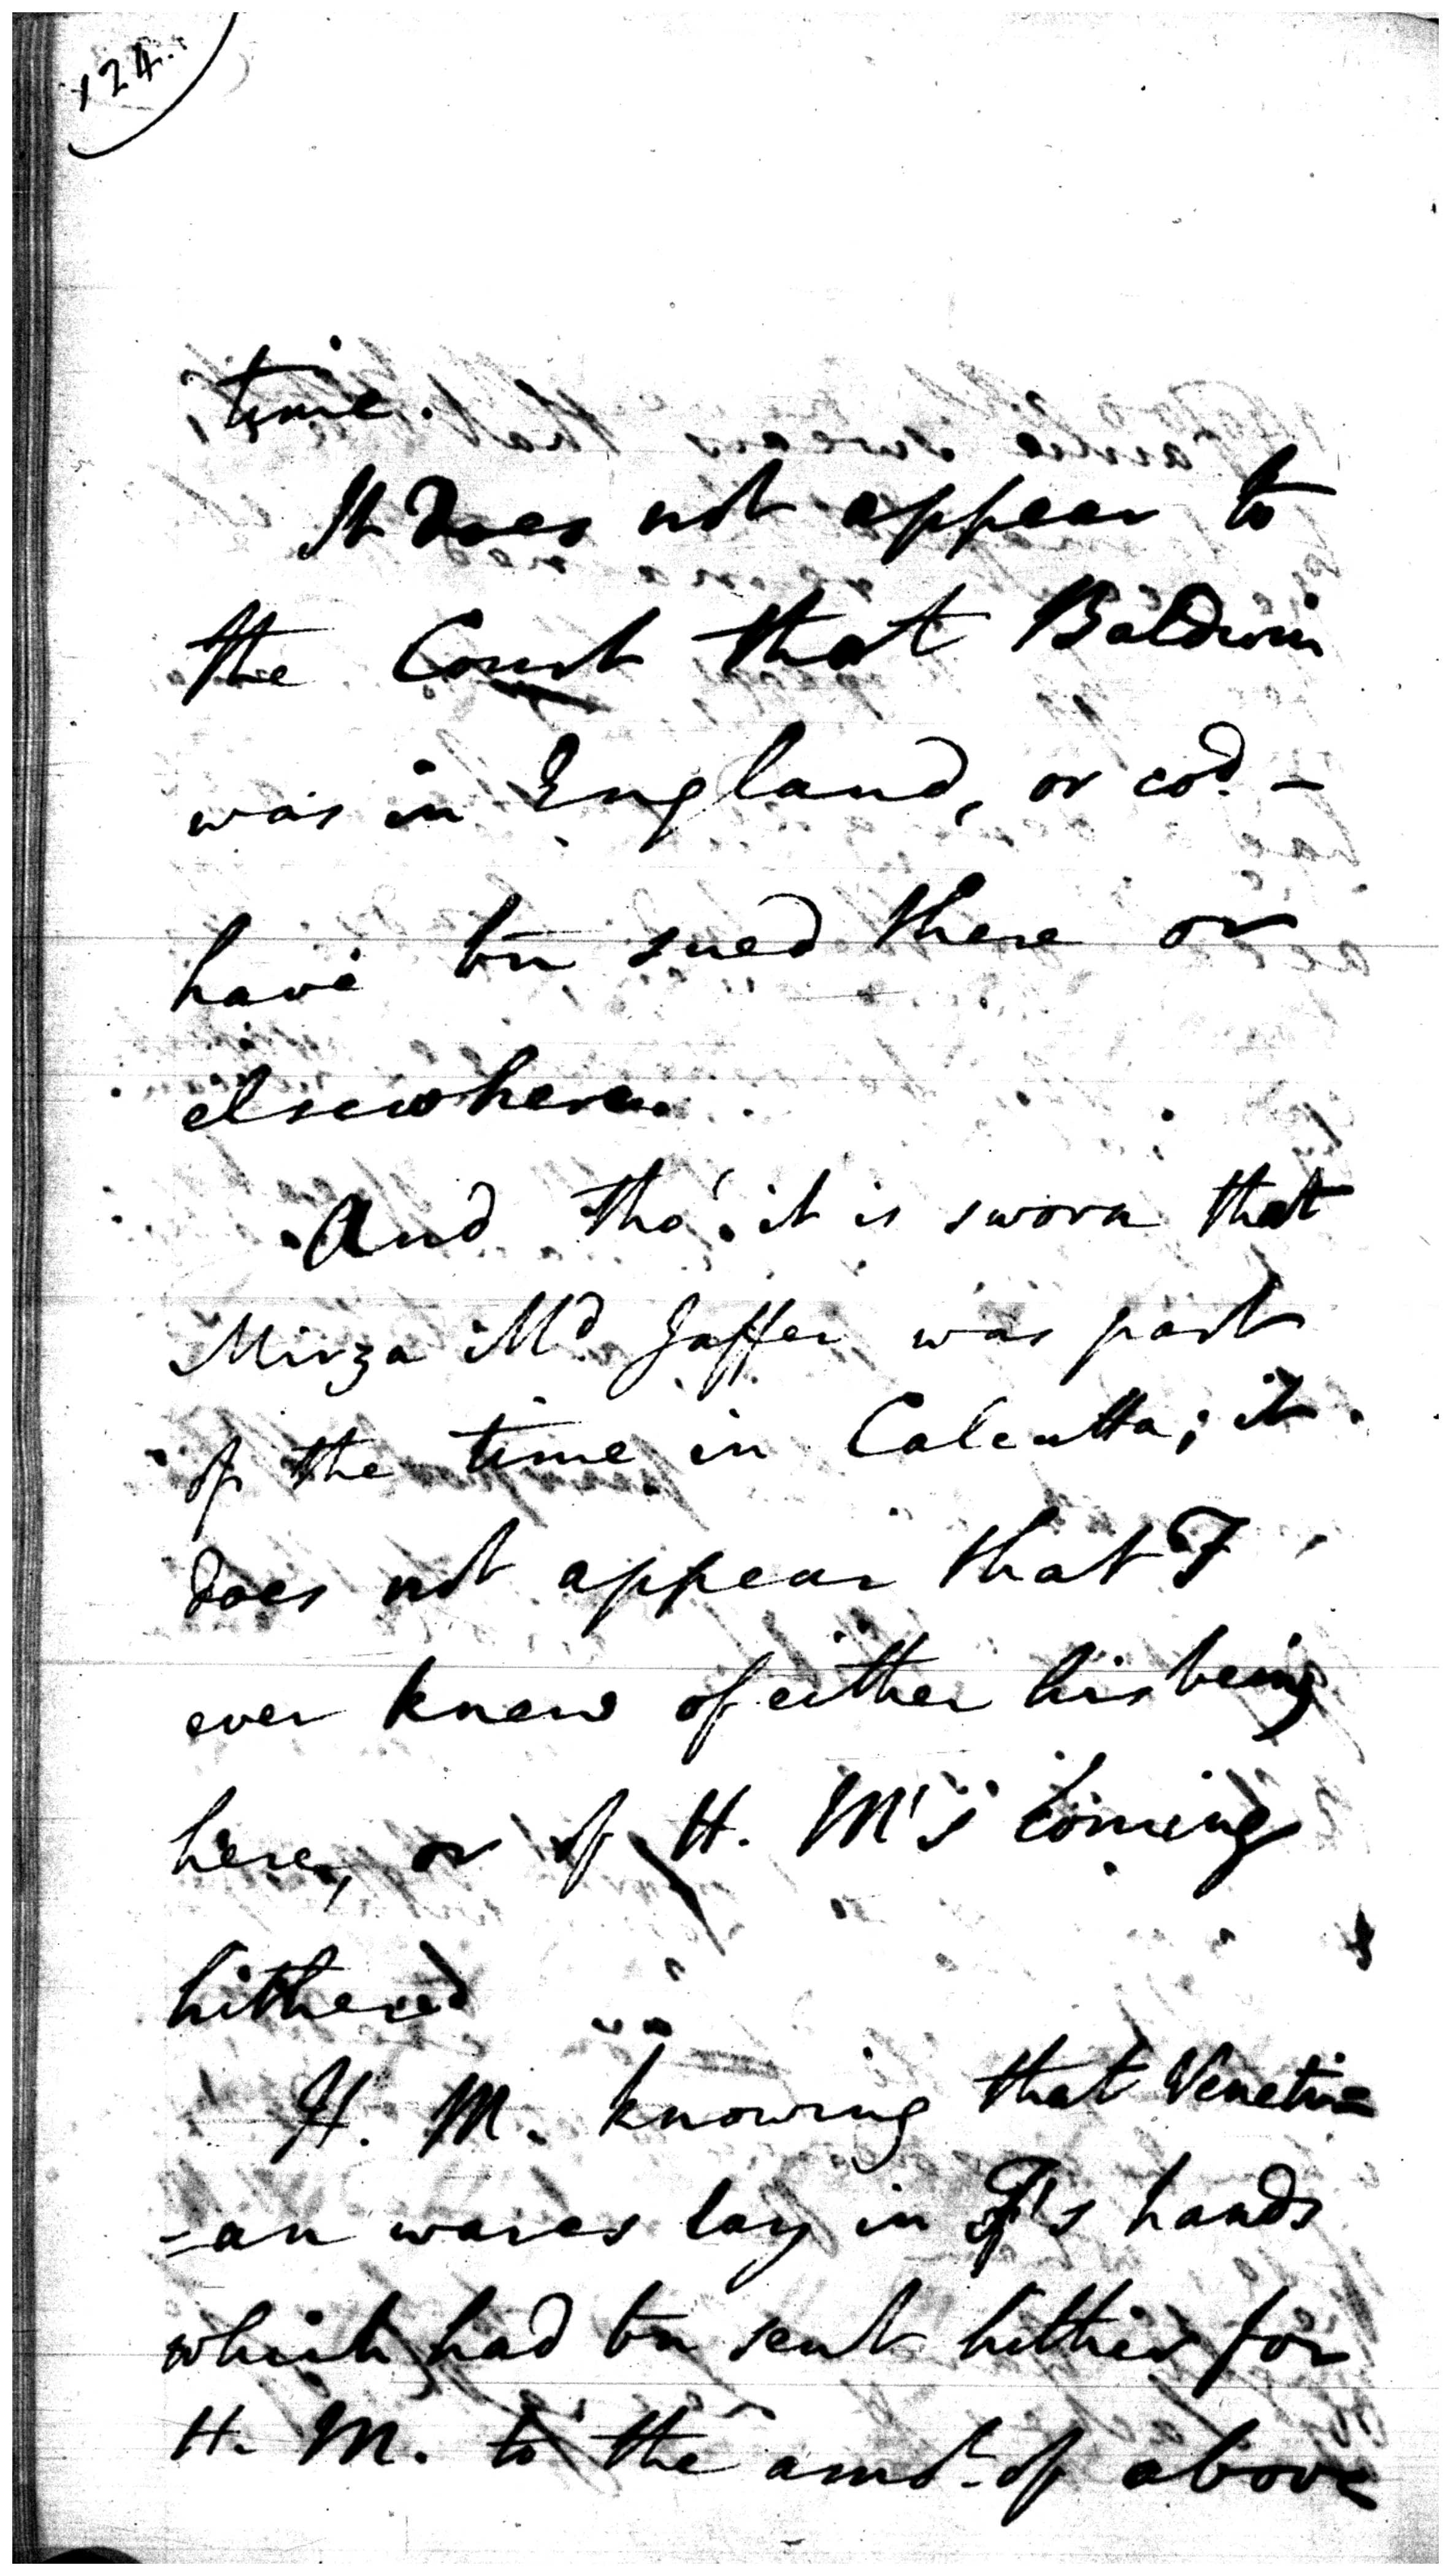 124.
time.
It does not appear to
the Court that Baldwin
was in England, or cod. -
have bn sued there or
elsewhere.
And tho' it is sworn that
Mirza Md Jaffer was part
of the time in Calcutta; it
does not appear that F
ever knew of either his being
here, or of H. M's coming
hither
H. M. knowing that Veneti=
=an wares lay in F's hands
which had bn sent hither for
H. M. to the amot. of above